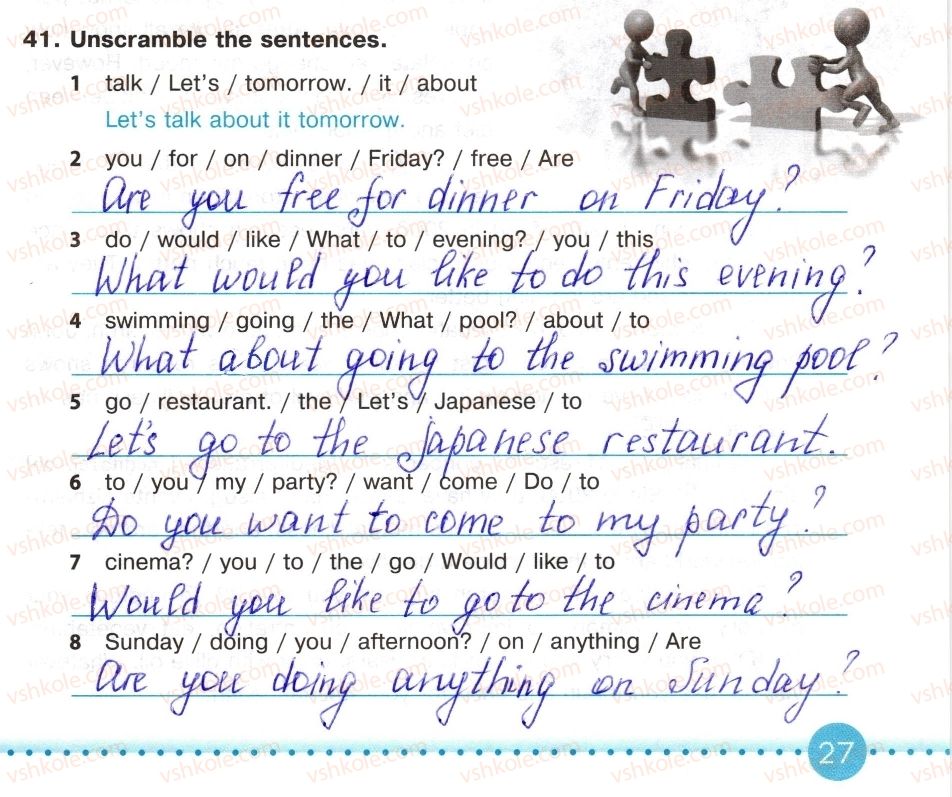 41. Unscramble the sentences.
1 talk / Let's / tomorrow. / it / about
Let's talk about it tomorrow.
2 you / for / on / dinner / Friday? / free / Are
Are you free for dinner on Friday?
3 do / would / like / What / to / evening? / you / this
What would you like to do this evening?
4 swimming / going / the / What / pool? / about / to
What about going to the swimming pool?
5 go / restaurant. / the / Let's / Japanese / to
Let's go to the Japanese restaurant.
6 to / you / my / party? / want / come / Do / to
Do you want to come to my party?
7 cinema? / you / to / the / go / Would / like / to
Would you like to go to the cinema?
8 Sunday / doing / you / afternoon? / on / anything / Are
Are you doing anything on Sunday?
27